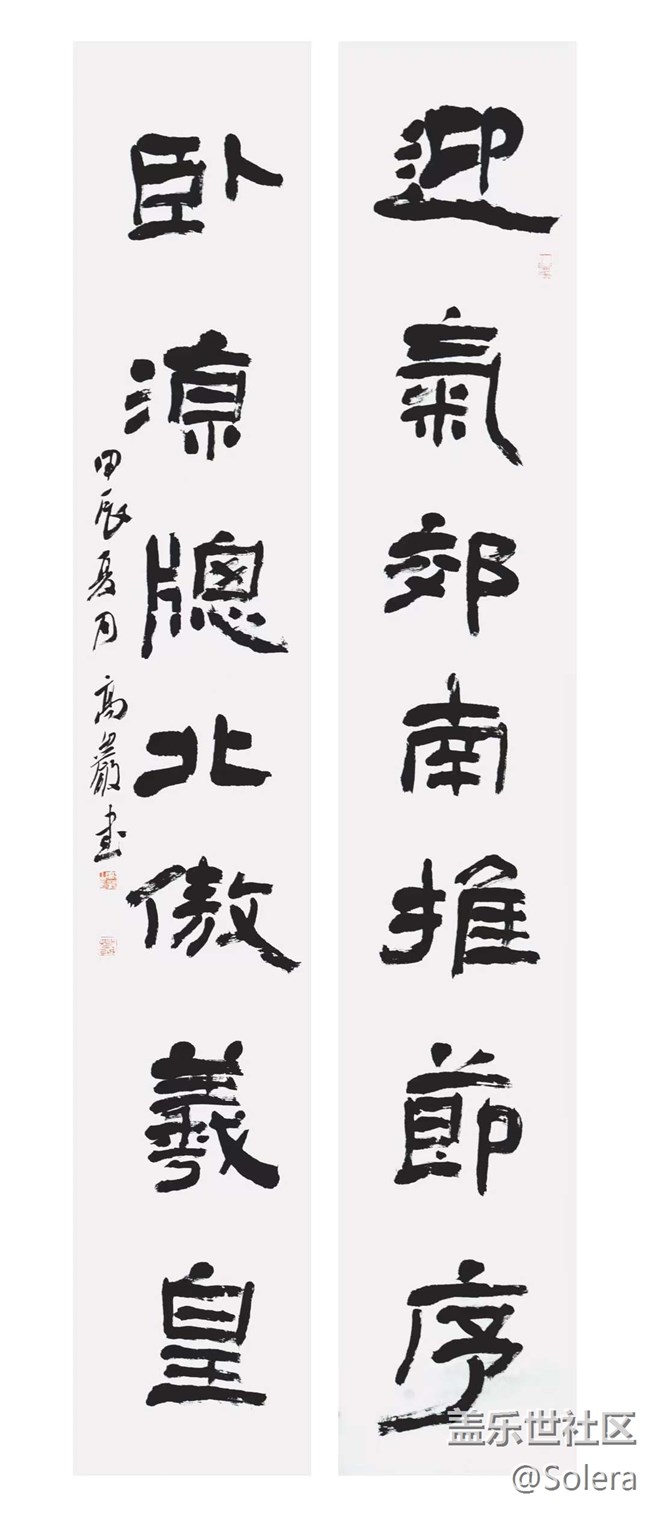 迎氣郊南推節序
卧涼牕北傲羲皇
甲辰夏月高巖書
盖乐世社区
@Solera